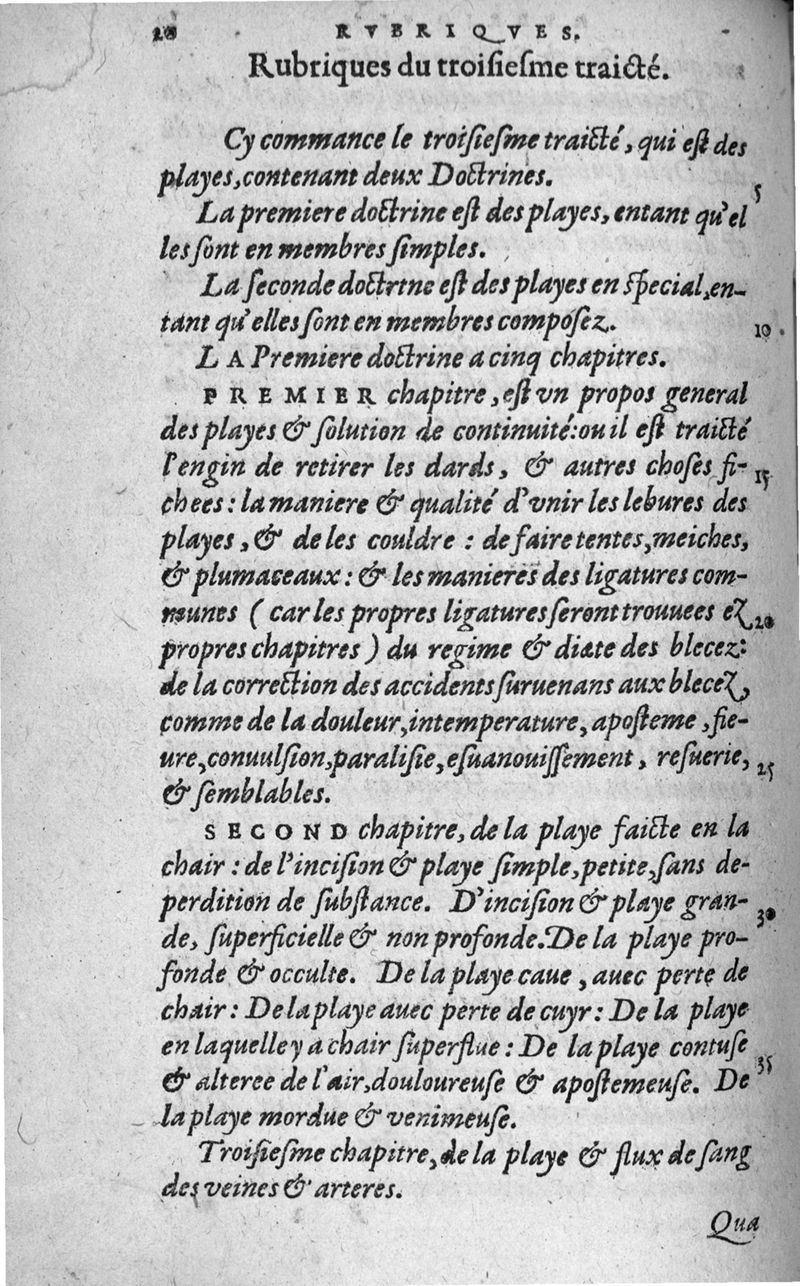 20 RVBRIQVES.
Rubriques du troisiesme traicté.
Cy commance le troisiesme traicté, qui est des
playes, contenant deux Doctrines.
5
La premiere doctrine est des playes, entant qu'el
les sont en membres simples.
La seconde doctrtne est des playes en special, en-
tant qu'elles sont en membres composez.
10
LA Premiere doctrine a cinq chapitres.
PREMIER chapitre, est vn propos general
des playes & solution de continuité: ou il est traicté
l'engin de retirer les dards, & autres choses fi-
15
chees: la maniere & qualité d'vnir les lebures des
playes, & de les couldre: de faire tentes, meiches,
& plumaceaux: & les manieres des ligatures com-
munes ( car les propres ligatures seront trouuees ez
20
propres chapitres ) du regime & diate des blecez:
de la correction des accidents suruenans aux blecez,
comme de la douleur, intemperature, aposteme, fie-
ure, conuulsion, paralisie, esuanouissement, resuerie,
25
& semblables.
SECOND chapitre, de la playe faicte en la
chair: de l'incision & playe simple, petite, sans de-
perdition de substance. D'incision & playe gran-
30
de, superficielle & non profonde. De la playe pro-
fonde & occulte. De la playe caue, auec perte de
chair: De la playe auec perte de cuyr: De la playe
en laquelle y a chair superflue: De la playe contuse
35
& alteree de l'air, douloureuse & apostemeuse. De
la playe mordue & venimeuse.
Troisiesme chapitre, de la playe & flux de sang
des veines & arteres.
Qua